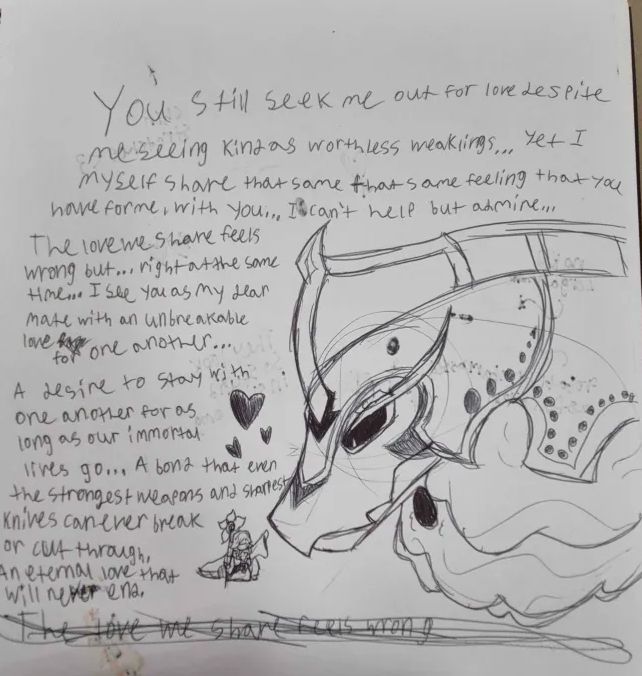 You still seek me out for love despite
me seeing kind as worthless weaklings... Yet I
myself share that same that same feeling that you
have for me, with you... I can't help but admire...
The love we share feels
wrong but... right at the same
time... I see you as my dear
mate with an unbreakable
love for one another...
A desire to stay with
one another for as
long as our immortal
lives go... A bond that even
the strongest weapons and sharpest
knives can ever break
or cut through,
An eternal love that
will never end.
The love we share feels wrong